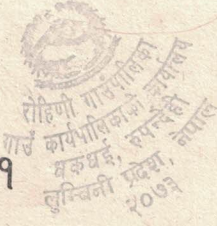 रोहिणी गाउँपालिका
गाउँ कार्यपालिकाको कार्यालय
धकधई, रुपन्देही
लुम्बिनी प्रदेश, नेपाल
२०७३
१